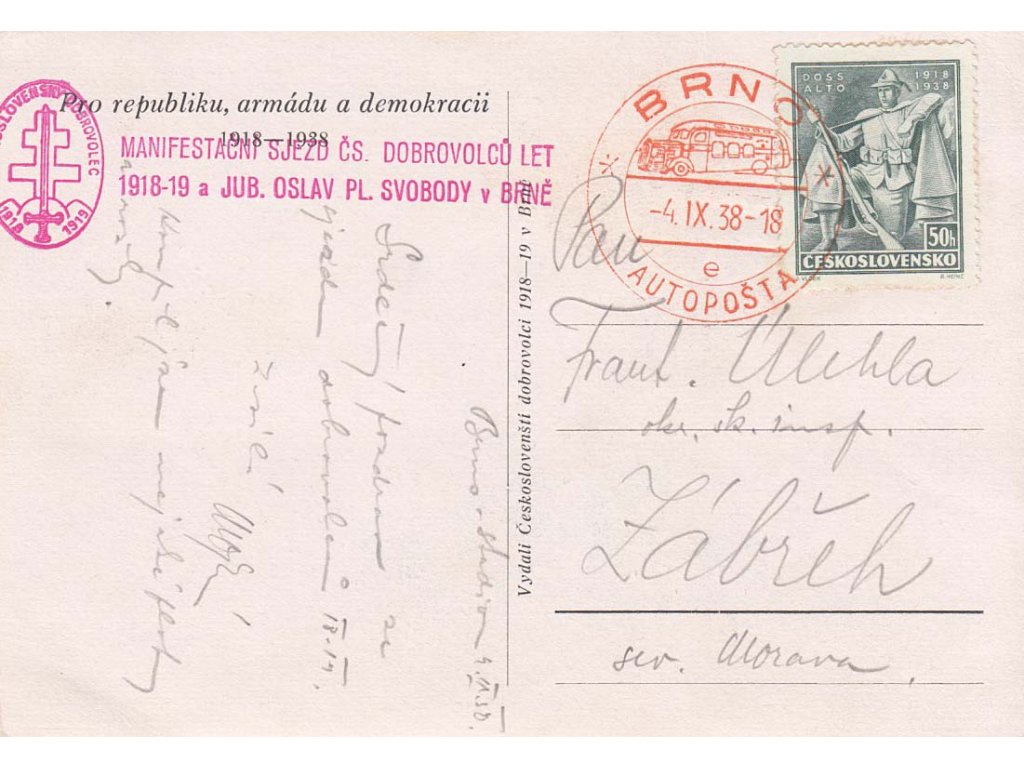 Pro republiku, armádu a demokracii
1918—1938
DOBROVOLEC
1918 1919
MANIFESTAČNÍ SJEZD ČS. DOBROVOLCŮ LET
1918-19 a JUB. OSLAV PL. SVOBODY v BRNĚ
BRNO
-4.IX.38-18
e
AUTOPOŠTA
DOSS ALTO
1918
1938
50h
ČESKOSLOVENSKO
Vydali Českoslovenští dobrovolci 1918—19 v Brně
Pan
Frant. Úlehla
okr. šk. insp.
Zábřeh
sev. Morava
Brno - stadion 4.IX.38.
Srdečný pozdrav ze
sjezdu dobrovolců 18-19.